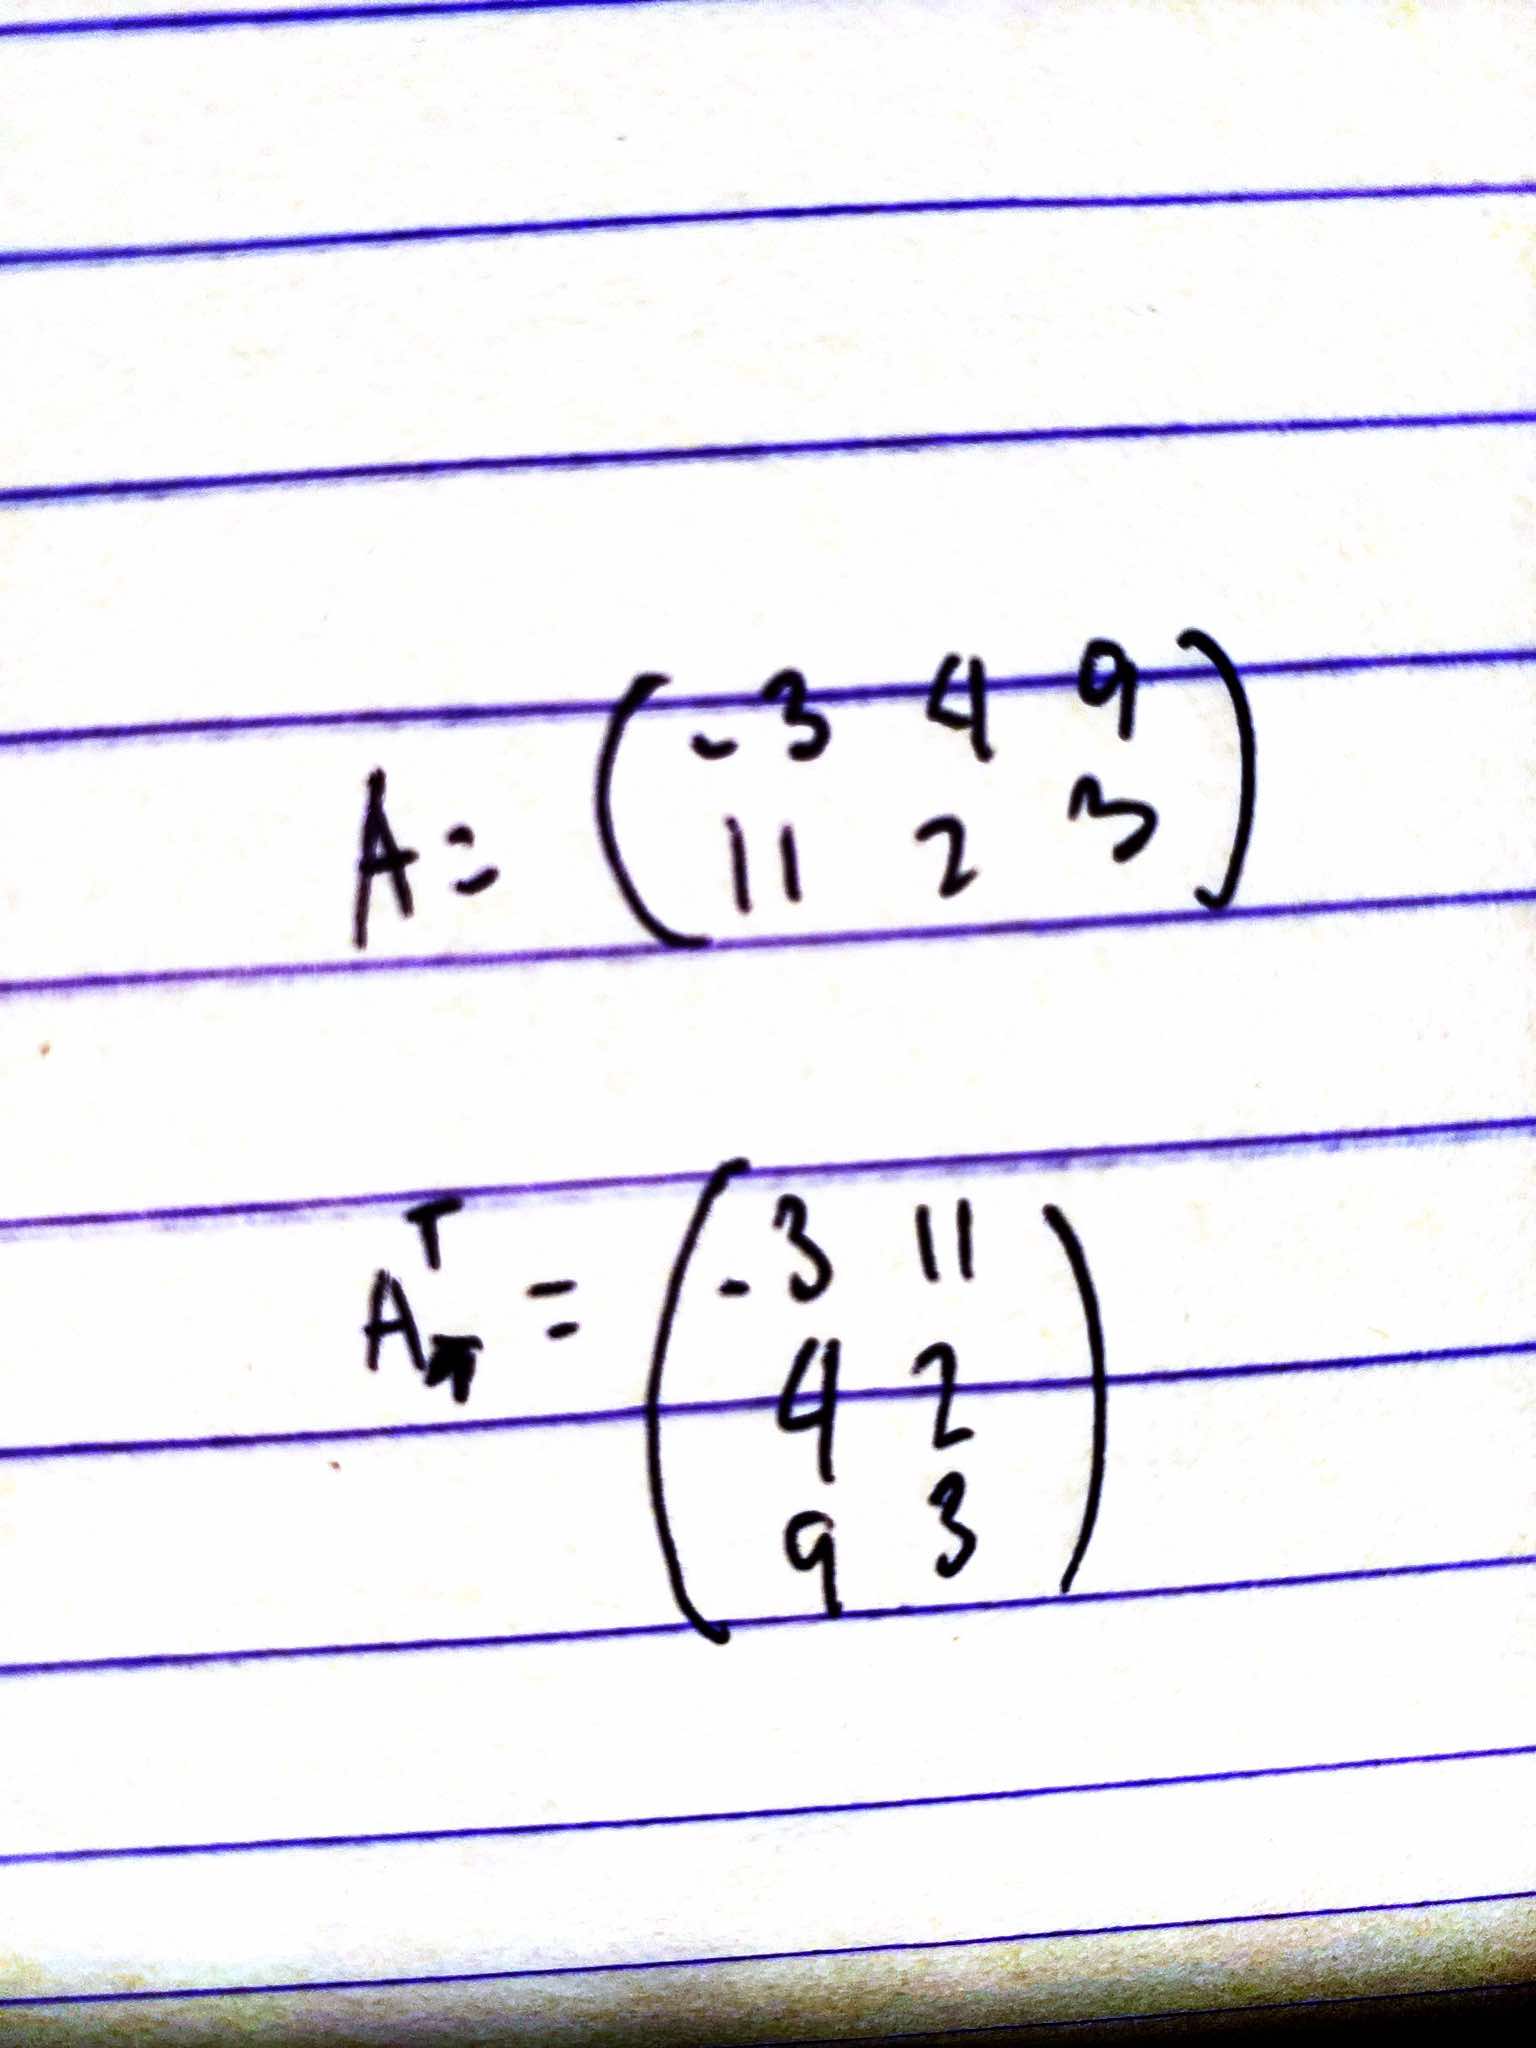 A = ( -3 4 9
11 2 3 )
A^T = ( -3 11
4 2
9 3 )